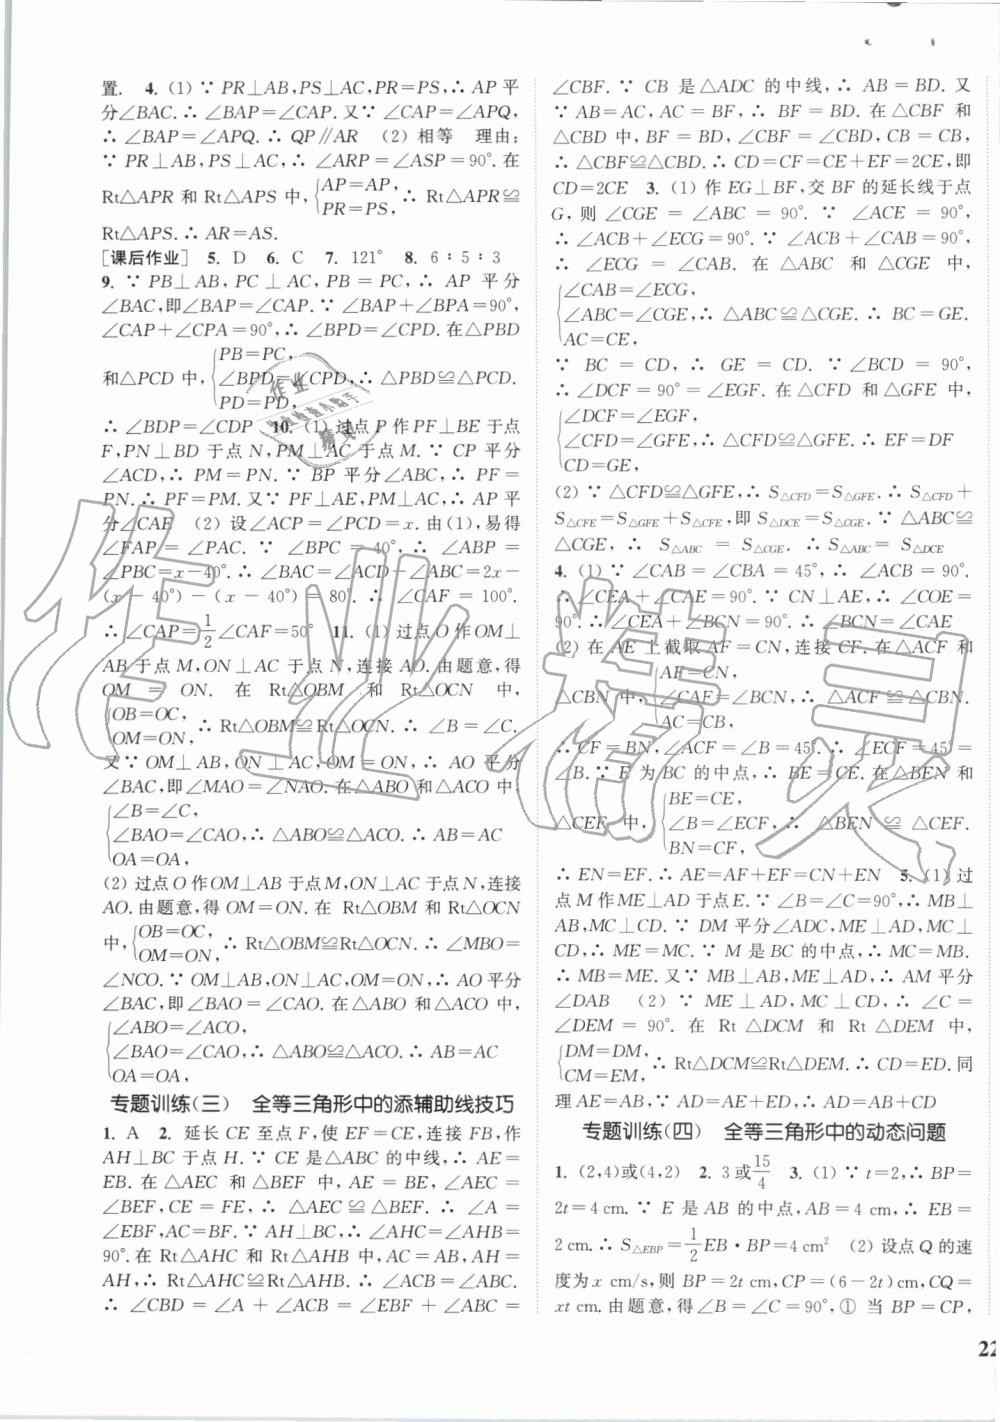 置. 4. (1) ∵ PR⊥AB,PS⊥AC,PR=PS,∴ AP 平
分∠BAC.∴ ∠BAP=∠CAP.又∵ ∠CAP=∠APQ,
∴ ∠BAP=∠APQ.∴ QP∥AR (2) 相等 理由:
∵ PR⊥AB,PS⊥AC,∴ ∠ARP=∠ASP=90°.在
Rt△APR 和 Rt△APS 中,{AP=AP, PR=PS, ∴ Rt△APR≌
Rt△APS.∴ AR=AS.
[课后作业] 5. D 6. C 7. 121° 8. 6∶5∶3
9. ∵ PB⊥AB,PC⊥AC,PB=PC,∴ AP 平分
∠BAC,即∠BAP=∠CAP.∵ ∠BAP+∠BPA=90°,
∠CAP+∠CPA=90°,∴ ∠BPD=∠CPD.在△PBD
和△PCD 中,{PB=PC, ∠BPD=∠CPD, PD=PD, ∴ △PBD≌△PCD.
∴ ∠BDP=∠CDP 10. (1) 过点 P 作 PF⊥BE 于点
F,PN⊥BD 于点 N,PM⊥AC 于点 M.∵ CP 平分
∠ACD,∴ PM=PN.∵ BP 平分∠ABC,∴ PF=
PN.∴ PF=PM.又∵ PF⊥AE,PM⊥AC,∴ AP 平
分∠CAF (2) 设∠ACP=∠PCD=x.由(1),易得
∠FAP=∠PAC.∵ ∠BPC=40°,∴ ∠ABP=
∠PBC=x−40°.∴ ∠BAC=∠ACD−∠ABC=2x−
(x−40°)−(x−40°)=80°.∴ ∠CAF=100°.
∴ ∠CAP=1/2∠CAF=50° 11. (1) 过点 O 作 OM⊥
AB 于点 M,ON⊥AC 于点 N,连接 AO.由题意,得
OM=ON.在 Rt△OBM 和 Rt△OCN 中,
{OB=OC, OM=ON, ∴ Rt△OBM≌Rt△OCN.∴ ∠B=∠C.
又∵ OM⊥AB,ON⊥AC,OM=ON,∴ AO 平分
∠BAC,即∠MAO=∠NAO.在△ABO 和△ACO 中,
{∠B=∠C, ∠BAO=∠CAO, OA=OA, ∴ △ABO≌△ACO.∴ AB=AC
(2) 过点 O 作 OM⊥AB 于点 M,ON⊥AC 于点 N,连接
AO.由题意,得 OM=ON.在 Rt△OBM 和 Rt△OCN
中,{OB=OC, OM=ON, ∴ Rt△OBM≌Rt△OCN.∴ ∠MBO=
∠NCO.∵ OM⊥AB,ON⊥AC,OM=ON,∴ AO 平分
∠BAC,即∠BAO=∠CAO.在△ABO 和△ACO 中,
{∠ABO=∠ACO, ∠BAO=∠CAO, OA=OA, ∴ △ABO≌△ACO.∴ AB=AC
专题训练(三) 全等三角形中的添辅助线技巧
1. A 2. 延长 CE 至点 F,使 EF=CE,连接 FB,作
AH⊥BC 于点 H.∵ CE 是△ABC 的中线,∴ AE=
EB.在△AEC 和△BEF 中,AE=BE,∠AEC=
∠BEF,CE=FE,∴ △AEC≌△BEF.∴ ∠A=
∠EBF,AC=BF.∵ AH⊥BC,∴ ∠AHC=∠AHB=
90°.在 Rt△AHC 和 Rt△AHB 中,AC=AB,AH=
AH,∴ Rt△AHC≌Rt△AHB.∴ ∠ACB=∠ABC.
∴ ∠CBD=∠A+∠ACB=∠EBF+∠ABC=
∠CBF.∵ CB 是△ADC 的中线,∴ AB=BD.又
∵ AB=AC,AC=BF,∴ BF=BD.在△CBF 和
△CBD 中,BF=BD,∠CBF=∠CBD,CB=CB,
∴ △CBF≌△CBD.∴ CD=CF=CE+EF=2CE,即
CD=2CE 3. (1) 作 EG⊥BF,交 BF 的延长线于点
G,则∠CGE=∠ABC=90°.∵ ∠ACE=90°,
∴ ∠ACB+∠ECG=90°.∵ ∠ACB+∠CAB=90°,
∴ ∠ECG=∠CAB.在△ABC 和△CGE 中,
{∠CAB=∠ECG, ∠ABC=∠CGE, AC=CE, ∴ △ABC≌△CGE.∴ BC=GE.
∵ BC=CD,∴ GE=CD.∵ ∠ABC=90°,
∴ ∠DCF=90°=∠EGF.在△CFD 和△GFE 中,
{∠DCF=∠EGF, ∠CFD=∠GFE, CD=GE, ∴ △CFD≌△GFE.∴ EF=DF
(2) ∵ △CFD≌△GFE,∴ S△CFD=S△GFE.∴ S△CFD+
S△CFE=S△GFE+S△CFE,即 S△DCE=S△CGE.∵ △ABC≌
△CGE,∴ S△ABC=S△CGE.∴ S△ABC=S△DCE
4. (1) ∵ ∠CAB=∠CBA=45°,∴ ∠ACB=90°.
∴ ∠CEA+∠CAE=90°.∵ CN⊥AE,∴ ∠COE=
90°.∴ ∠CEA+∠BCN=90°.∴ ∠BCN=∠CAE
(2) 在 AE 上截取 AF=CN,连接 CF.在△ACF 和
△CBN 中,{AF=CN, ∠CAF=∠BCN, AC=CB, ∴ △ACF≌△CBN.
∴ CF=BN,∠ACF=∠B=45°.∴ ∠ECF=45°=
∠B.∵ E 为 BC 的中点,∴ BE=CE.在△BEN 和
△CEF 中,{BE=CE, ∠B=∠ECF, BN=CF, ∴ △BEN≌△CEF.
∴ EN=EF.∴ AE=AF+EF=CN+EN 5. (1) 过
点 M 作 ME⊥AD 于点 E.∵ ∠B=∠C=90°,∴ MB⊥
AB,MC⊥CD.∵ DM 平分∠ADC,ME⊥AD,MC⊥
CD,∴ ME=MC.∵ M 是 BC 的中点,∴ MC=MB.
∴ MB=ME.又∵ MB⊥AB,ME⊥AD,∴ AM 平分
∠DAB (2) ∵ ME⊥AD,MC⊥CD,∴ ∠C=
∠DEM=90°.在 Rt△DCM 和 Rt△DEM 中,
{DM=DM, CM=EM, ∴ Rt△DCM≌Rt△DEM.∴ CD=ED.同
理 AE=AB,∵ AD=AE+ED,∴ AD=AB+CD
专题训练(四) 全等三角形中的动态问题
1. (2,4)或(4,2) 2. 3或15/4 3. (1) ∵ t=2,∴ BP=
2t=4 cm.∵ E 是 AB 的中点,AB=4 cm,∴ EB=
2 cm.∴ S△EBP=1/2EB·BP=4 cm² (2) 设点 Q 的速
度为 x cm/s,则 BP=2t cm,CP=(6−2t)cm,CQ=
xt cm.由题意,得∠B=∠C=90°,① 当 BP=CP,
22
作业精灵